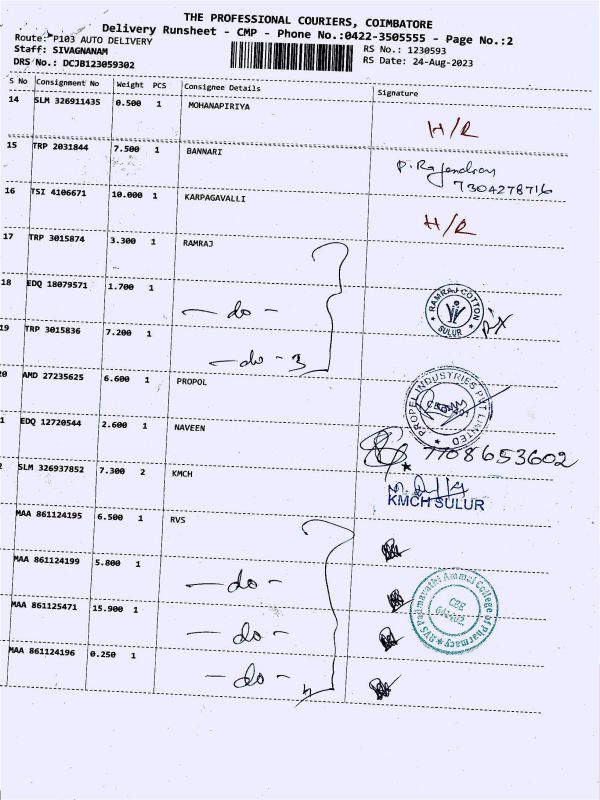 THE PROFESSIONAL COURIERS, COIMBATORE
Delivery Runsheet - CMP - Phone No.:0422-3505555 - Page No.:2
Route: P103 AUTO DELIVERY
Staff: SIVAGNANAM
RS No.: 1230593
DRS No.: DCJB123059302
RS Date: 24-Aug-2023
S No Consignment No Weight PCS Consignee Details Signature
14 SLM 326911435 0.500 1 MOHANAPIRIYA H/R
15 TRP 2031844 7.500 1 BANNARI P. Rajendran
7304278716
16 TSI 4106671 10.000 1 KARPAGAVALLI H/R
17 TRP 3015874 3.300 1 RAMRAJ
18 EDQ 18079571 1.700 1 - do - RAMRAJ COTTON SULUR
19 TRP 3015836 7.200 1 - do - 3
20 AMD 27235625 6.600 1 PROPOL PROPEL INDUSTRIES PVT LIMITED
1 EDQ 12720544 2.600 1 NAVEEN 7708653602
2 SLM 326937852 7.300 2 KMCH KMCH SULUR
MAA 861124195 6.500 1 RVS
MAA 861124199 5.800 1 - do -
MAA 861125471 15.900 1 - do - RVS Padmavathi Ammal College of Pharmacy
MAA 861124196 0.250 1 - do - 4